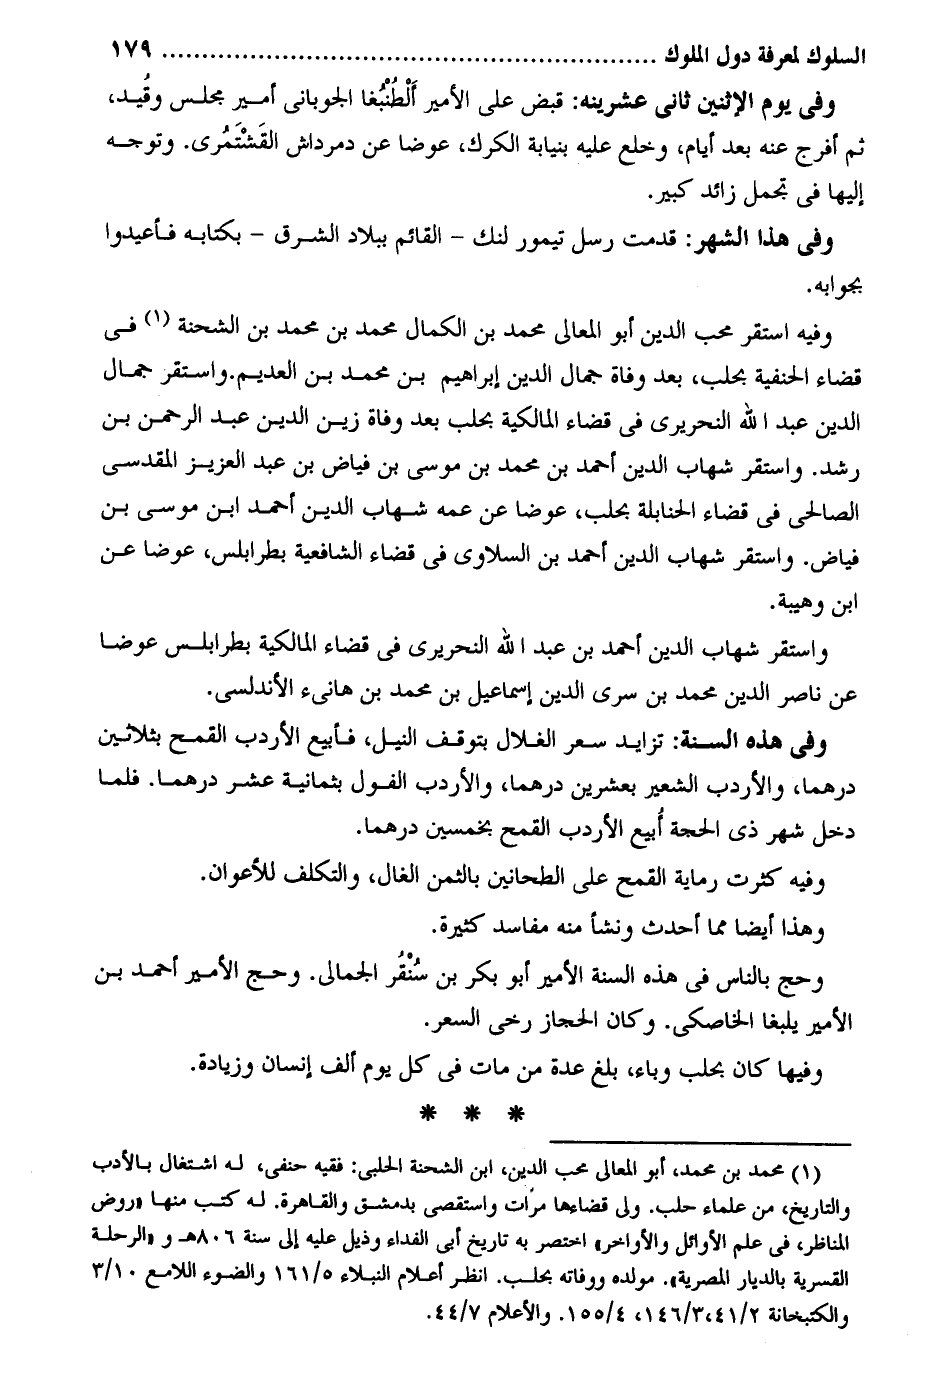 السلوك لمعرفة دول الملوك ................................................................ ١٧٩
وفى يوم الإثنين ثانى عشرينه: قبض على الأمير أَلْطُنْبُغا الجوبانى أمير مجلس وقُيد،
ثم أفرج عنه بعد أيام، وخلع عليه بنيابة الكرك، عوضا عن دمرداش القَشْتَمُرى. وتوجه
إليها فى تجمل زائد كبير.
وفى هذا الشهر: قدمت رسل تيمور لنك – القائم ببلاد الشرق – بكتابه فأعيدوا
بجوابه.
وفيه استقر محب الدين أبو المعالى محمد بن الكمال محمد بن محمد بن الشحنة (١) فى
قضاء الحنفية بحلب، بعد وفاة جمال الدين إبراهيم بن محمد بن العديم.واستقر جمال
الدين عبد الله النحريرى فى قضاء المالكية بحلب بعد وفاة زين الدين عبد الرحمن بن
رشد. واستقر شهاب الدين أحمد بن محمد بن موسى بن فياض بن عبد العزيز المقدسى
الصالحى فى قضاء الحنابلة بحلب، عوضا عن عمه شهاب الدين أحمد ابن موسى بن
فياض. واستقر شهاب الدين أحمد بن السلاوى فى قضاء الشافعية بطرابلس، عوضا عن
ابن وهيبة.
واستقر شهاب الدين أحمد بن عبد الله النحريرى فى قضاء المالكية بطرابلس عوضا
عن ناصر الدين محمد بن سرى الدين إسماعيل بن محمد بن هانىء الأندلسى.
وفى هذه السنة: تزايد سعر الغلال بتوقف النيل، فأبيع الأردب القمح بثلاثين
درهما، والأردب الشعير بعشرين درهما، والأردب الفول بثمانية عشر درهما. فلما
دخل شهر ذى الحجة أُبيع الأردب القمح بخمسين درهما.
وفيه كثرت رماية القمح على الطحانين بالثمن الغال، والتكلف للأعوان.
وهذا أيضا مما أحدث ونشأ منه مفاسد كثيرة.
وحج بالناس فى هذه السنة الأمير أبو بكر بن سُنْقُر الجمالى. وحج الأمير أحمد بن
الأمير يلبغا الخاصكى. وكان الحجاز رخى السعر.
وفيها كان بحلب وباء، بلغ عدة من مات فى كل يوم ألف إنسان وزيادة.
* * *
(١) محمد بن محمد، أبو المعالى محب الدين، ابن الشحنة الحلبى: فقيه حنفى، له اشتغال بالأدب
والتاريخ، من علماء حلب. ولى قضاءها مرات واستقصى بدمشق والقاهرة. له كتب منها «روض
المناظر، فى علم الأوائل والأواخر» اختصر به تاريخ أبى الفداء وذيل عليه إلى سنة ٨٠٦هـ و «الرحلة
القسرية بالديار المصرية». مولده ووفاته بحلب. انظر أعلام النبلاء ١٦١/٥ والضوء اللامع ٣/١٠
والكتبخانة ١٤٦/٣،٤١/٢، ١٥٥/٤. والأعلام ٤٤/٧.